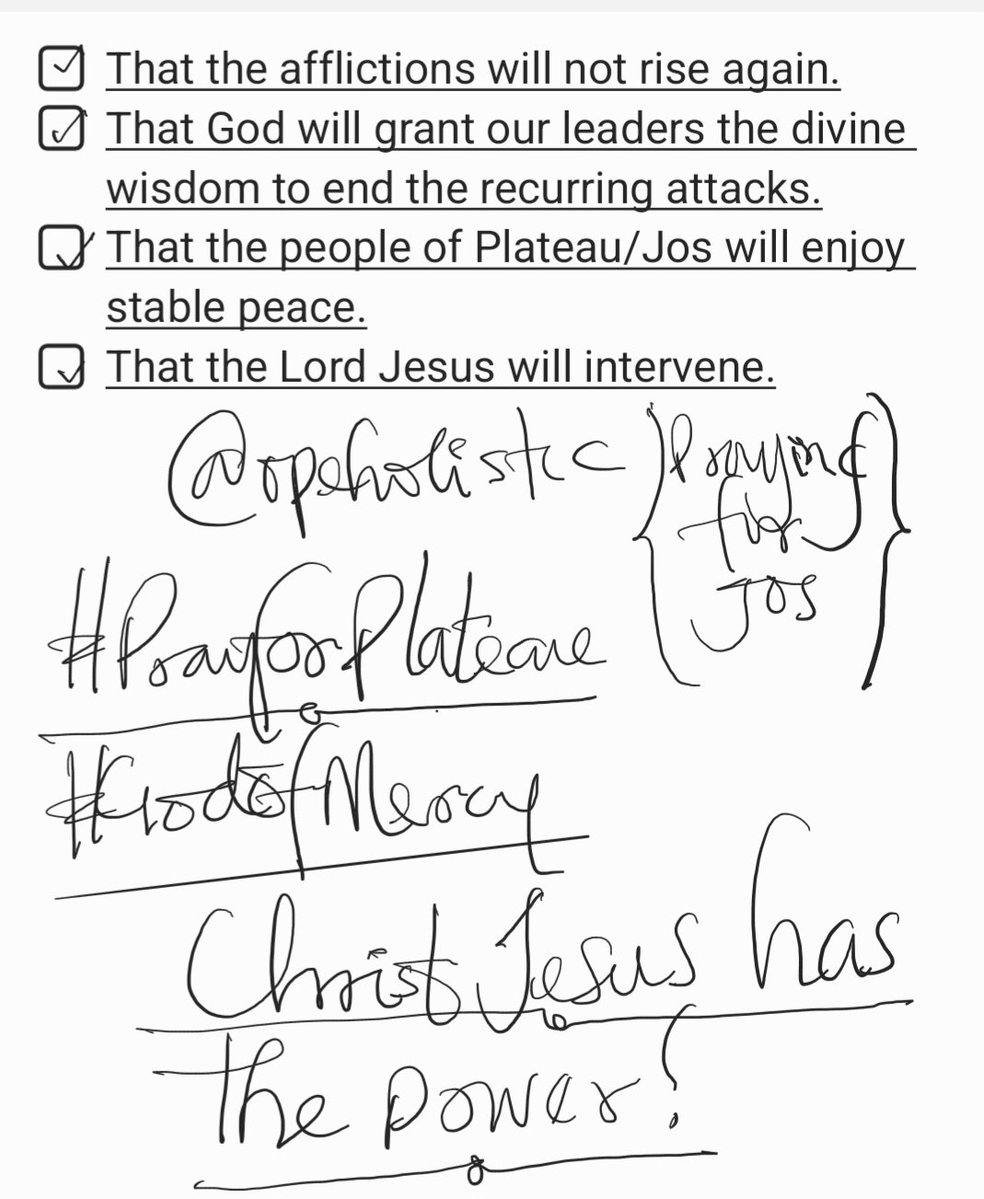 That the afflictions will not rise again.
That God will grant our leaders the divine
wisdom to end the recurring attacks.
That the people of Plateau/Jos will enjoy
stable peace.
That the Lord Jesus will intervene.
@opeholistic
Praying
for
Jos
#PrayforPlateau
#GodofMercy
Christ Jesus has
The power!